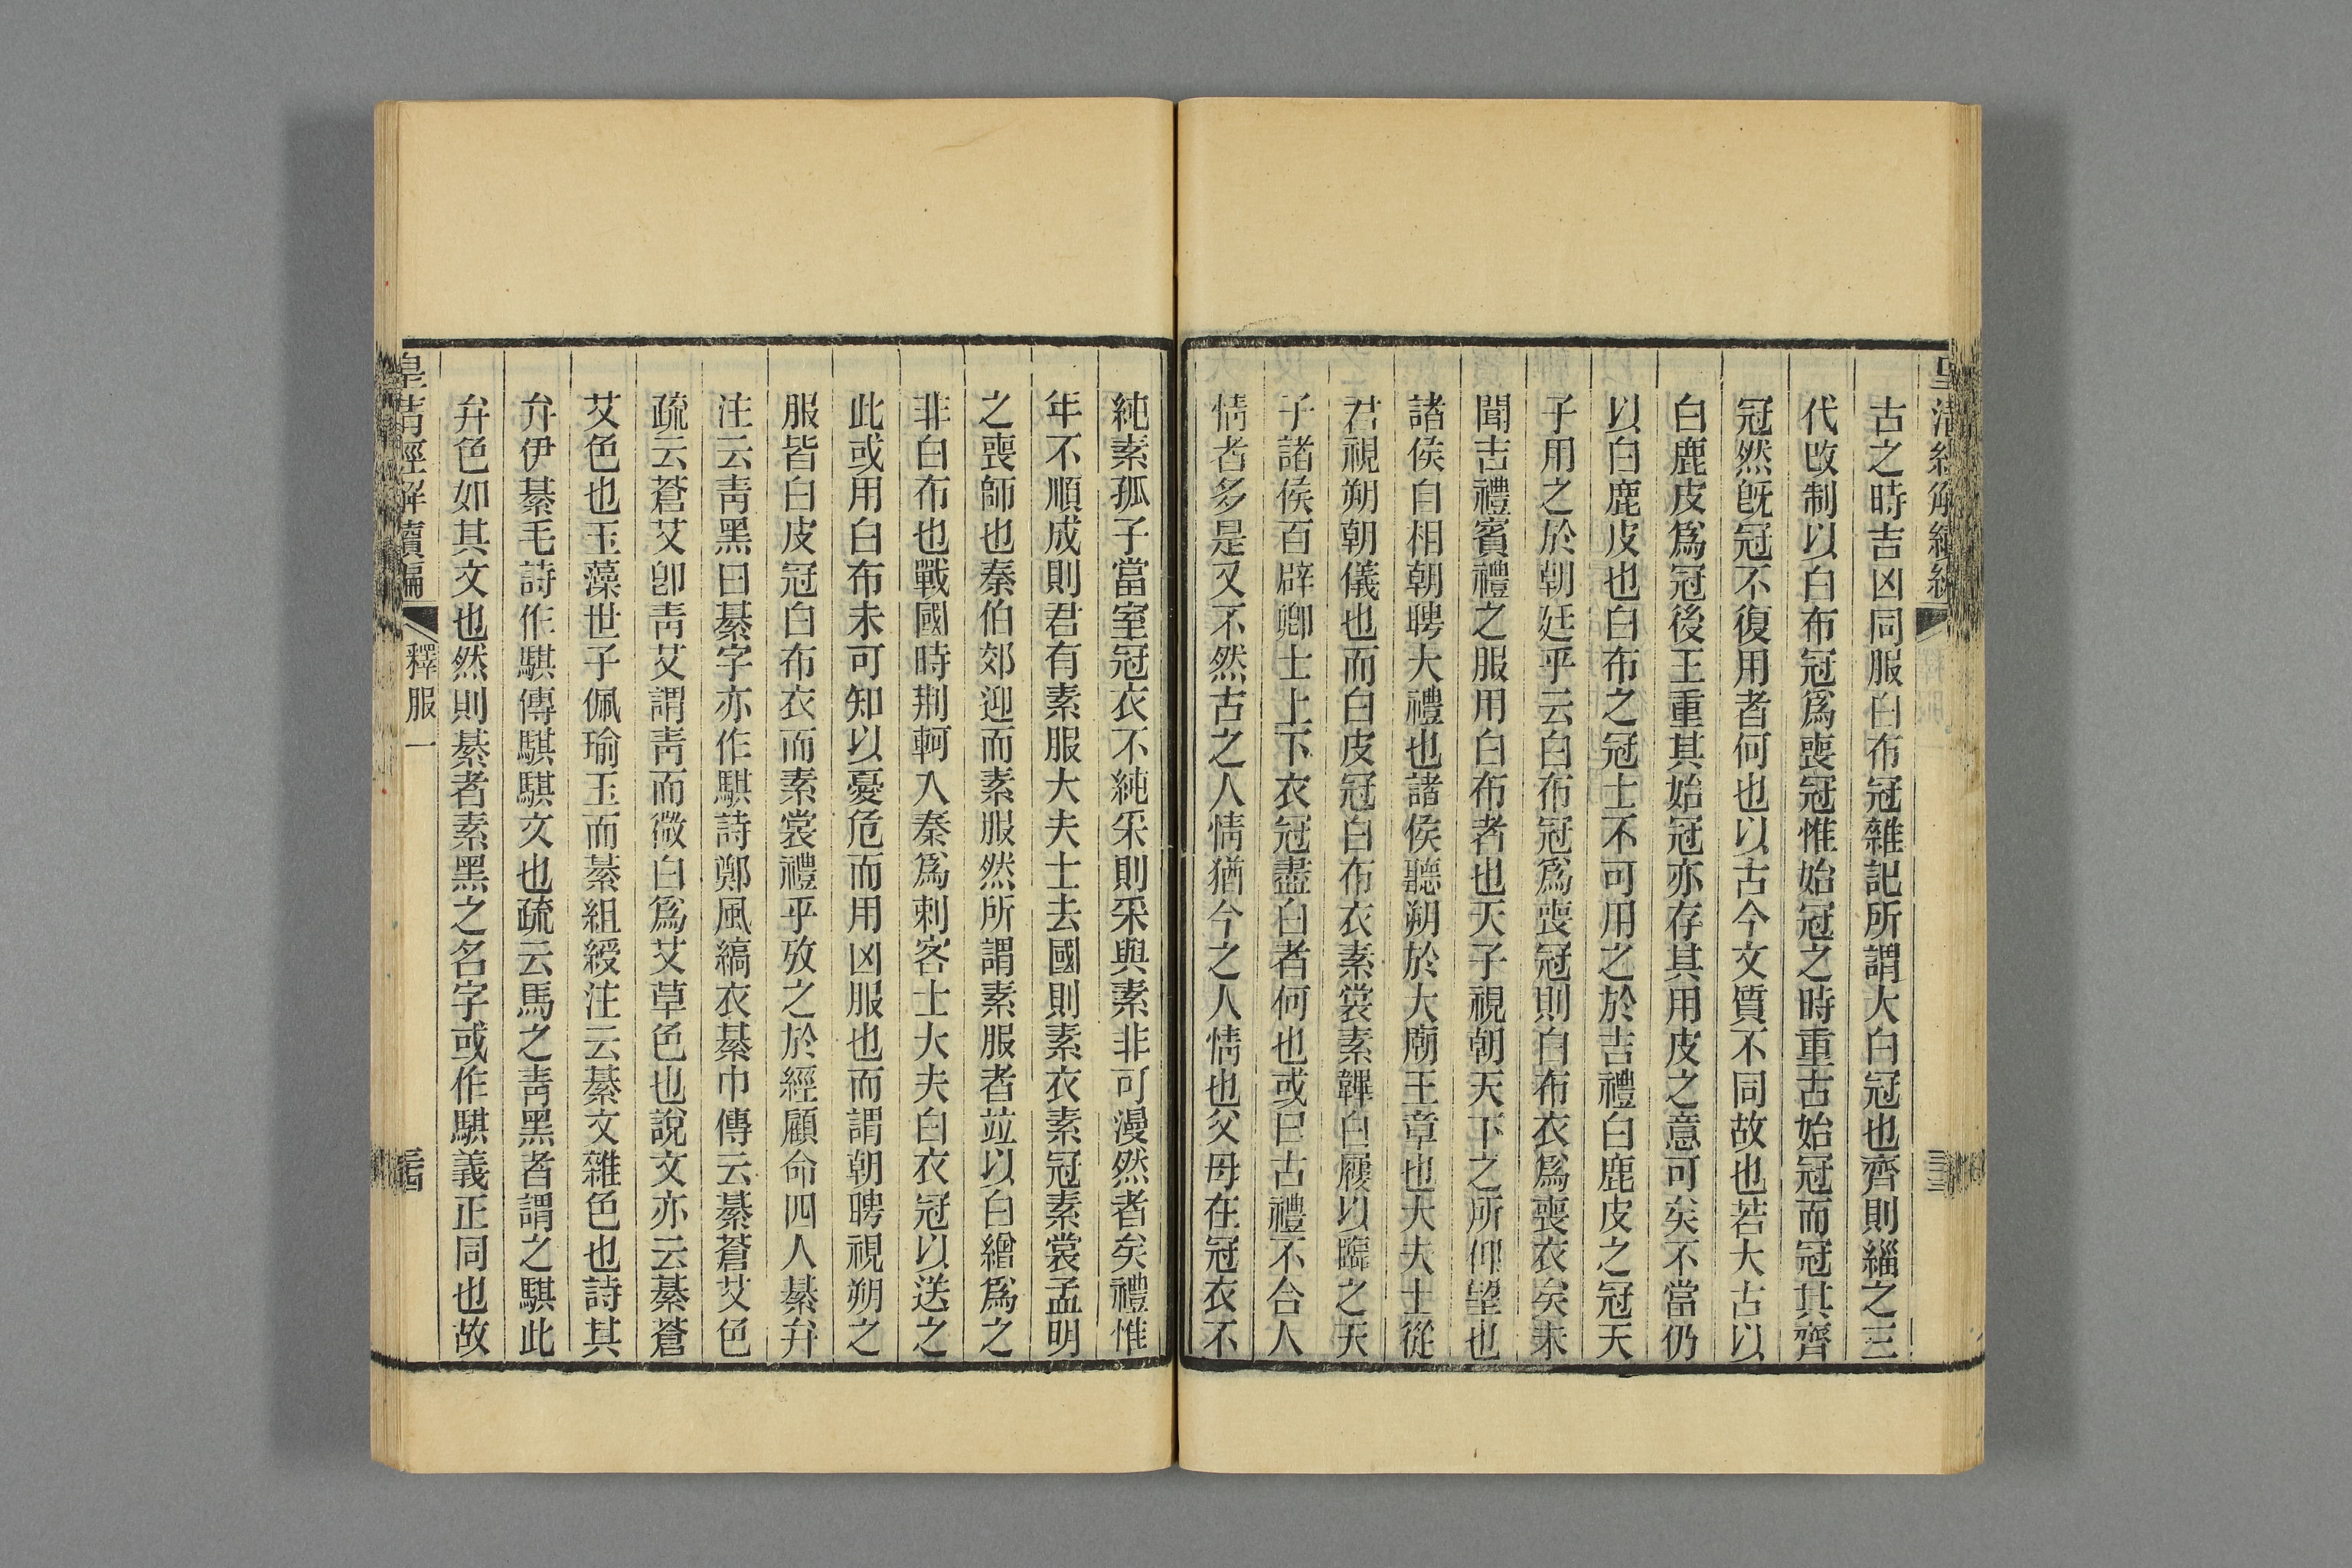 古之時吉凶同服白布冠雜記所謂大白冠也齊則緇之三
代改制以白布冠爲喪冠惟始冠之時重古始冠而冠其齊
冠然旣冠不復用者何也以古今文質不同故也若大古以
白鹿皮爲冠後王重其始冠亦存其用皮之意可矣不當仍
以白鹿皮也白布之冠士不可用之於吉禮白鹿皮之冠天
子用之於朝廷乎云白布冠爲喪冠則白布衣爲喪衣矣未
聞吉禮賓禮之服用白布者也天子視朝天下之所仰望也
諸侯自相朝聘大禮也諸侯聽朔於大廟王章也大夫士從
君視朔朝儀也而白皮冠白布衣素裳素韠白屨以臨之天
子諸侯百辟卿士上下衣冠盡白者何也或曰古禮不合人
情者多是又不然古之人情猶今之人情也父母在冠衣不
純素孤子當室冠衣不純采則采與素非可漫然者矣禮惟
年不順成則君有素服大夫士去國則素衣素冠素裳孟明
之喪師也秦伯郊迎而素服然所謂素服者竝以白繒爲之
非白布也戰國時荆軻入秦爲刺客士大夫白衣冠以送之
此或用白布未可知以憂危而用凶服也而謂朝聘視朔之
服皆白皮冠白布衣而素裳禮乎攷之於經顧命四人綦弁
注云靑黑曰綦字亦作騏詩鄭風縞衣綦巾傳云綦蒼艾色
疏云蒼艾卽靑艾謂靑而微白爲艾草色也說文亦云綦蒼
艾色也玉藻世子佩瑜玉而綦組綬注云綦文雜色也詩其
弁伊綦毛詩作騏傳騏騏文也疏云馬之靑黑者謂之騏此
弁色如其文也然則綦者素黑之名字或作騏義正同也故
皇淸經解續編
釋服一